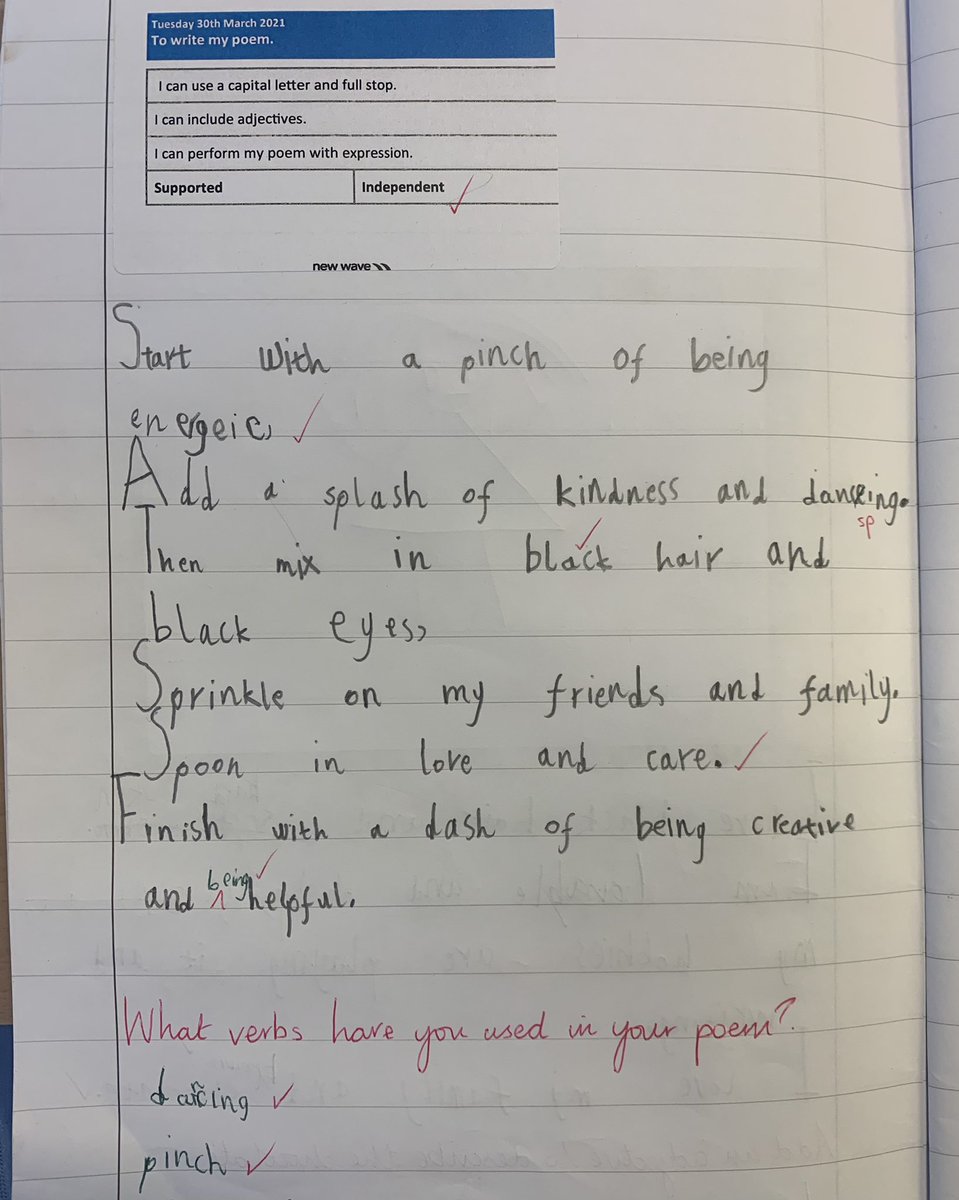 Tuesday 30th March 2021
To write my poem.
I can use a capital letter and full stop.
I can include adjectives.
I can perform my poem with expression.
Supported Independent
new wave
Start with a pinch of being
energeic,
Add a splash of kindness and danceing.
sp
Then mix in black hair and
black eyes,
Sprinkle on my friends and family.
Spoon in love and care.
Finish with a dash of being creative
and being helpful.
What verbs have you used in your poem?
dancing
pinch